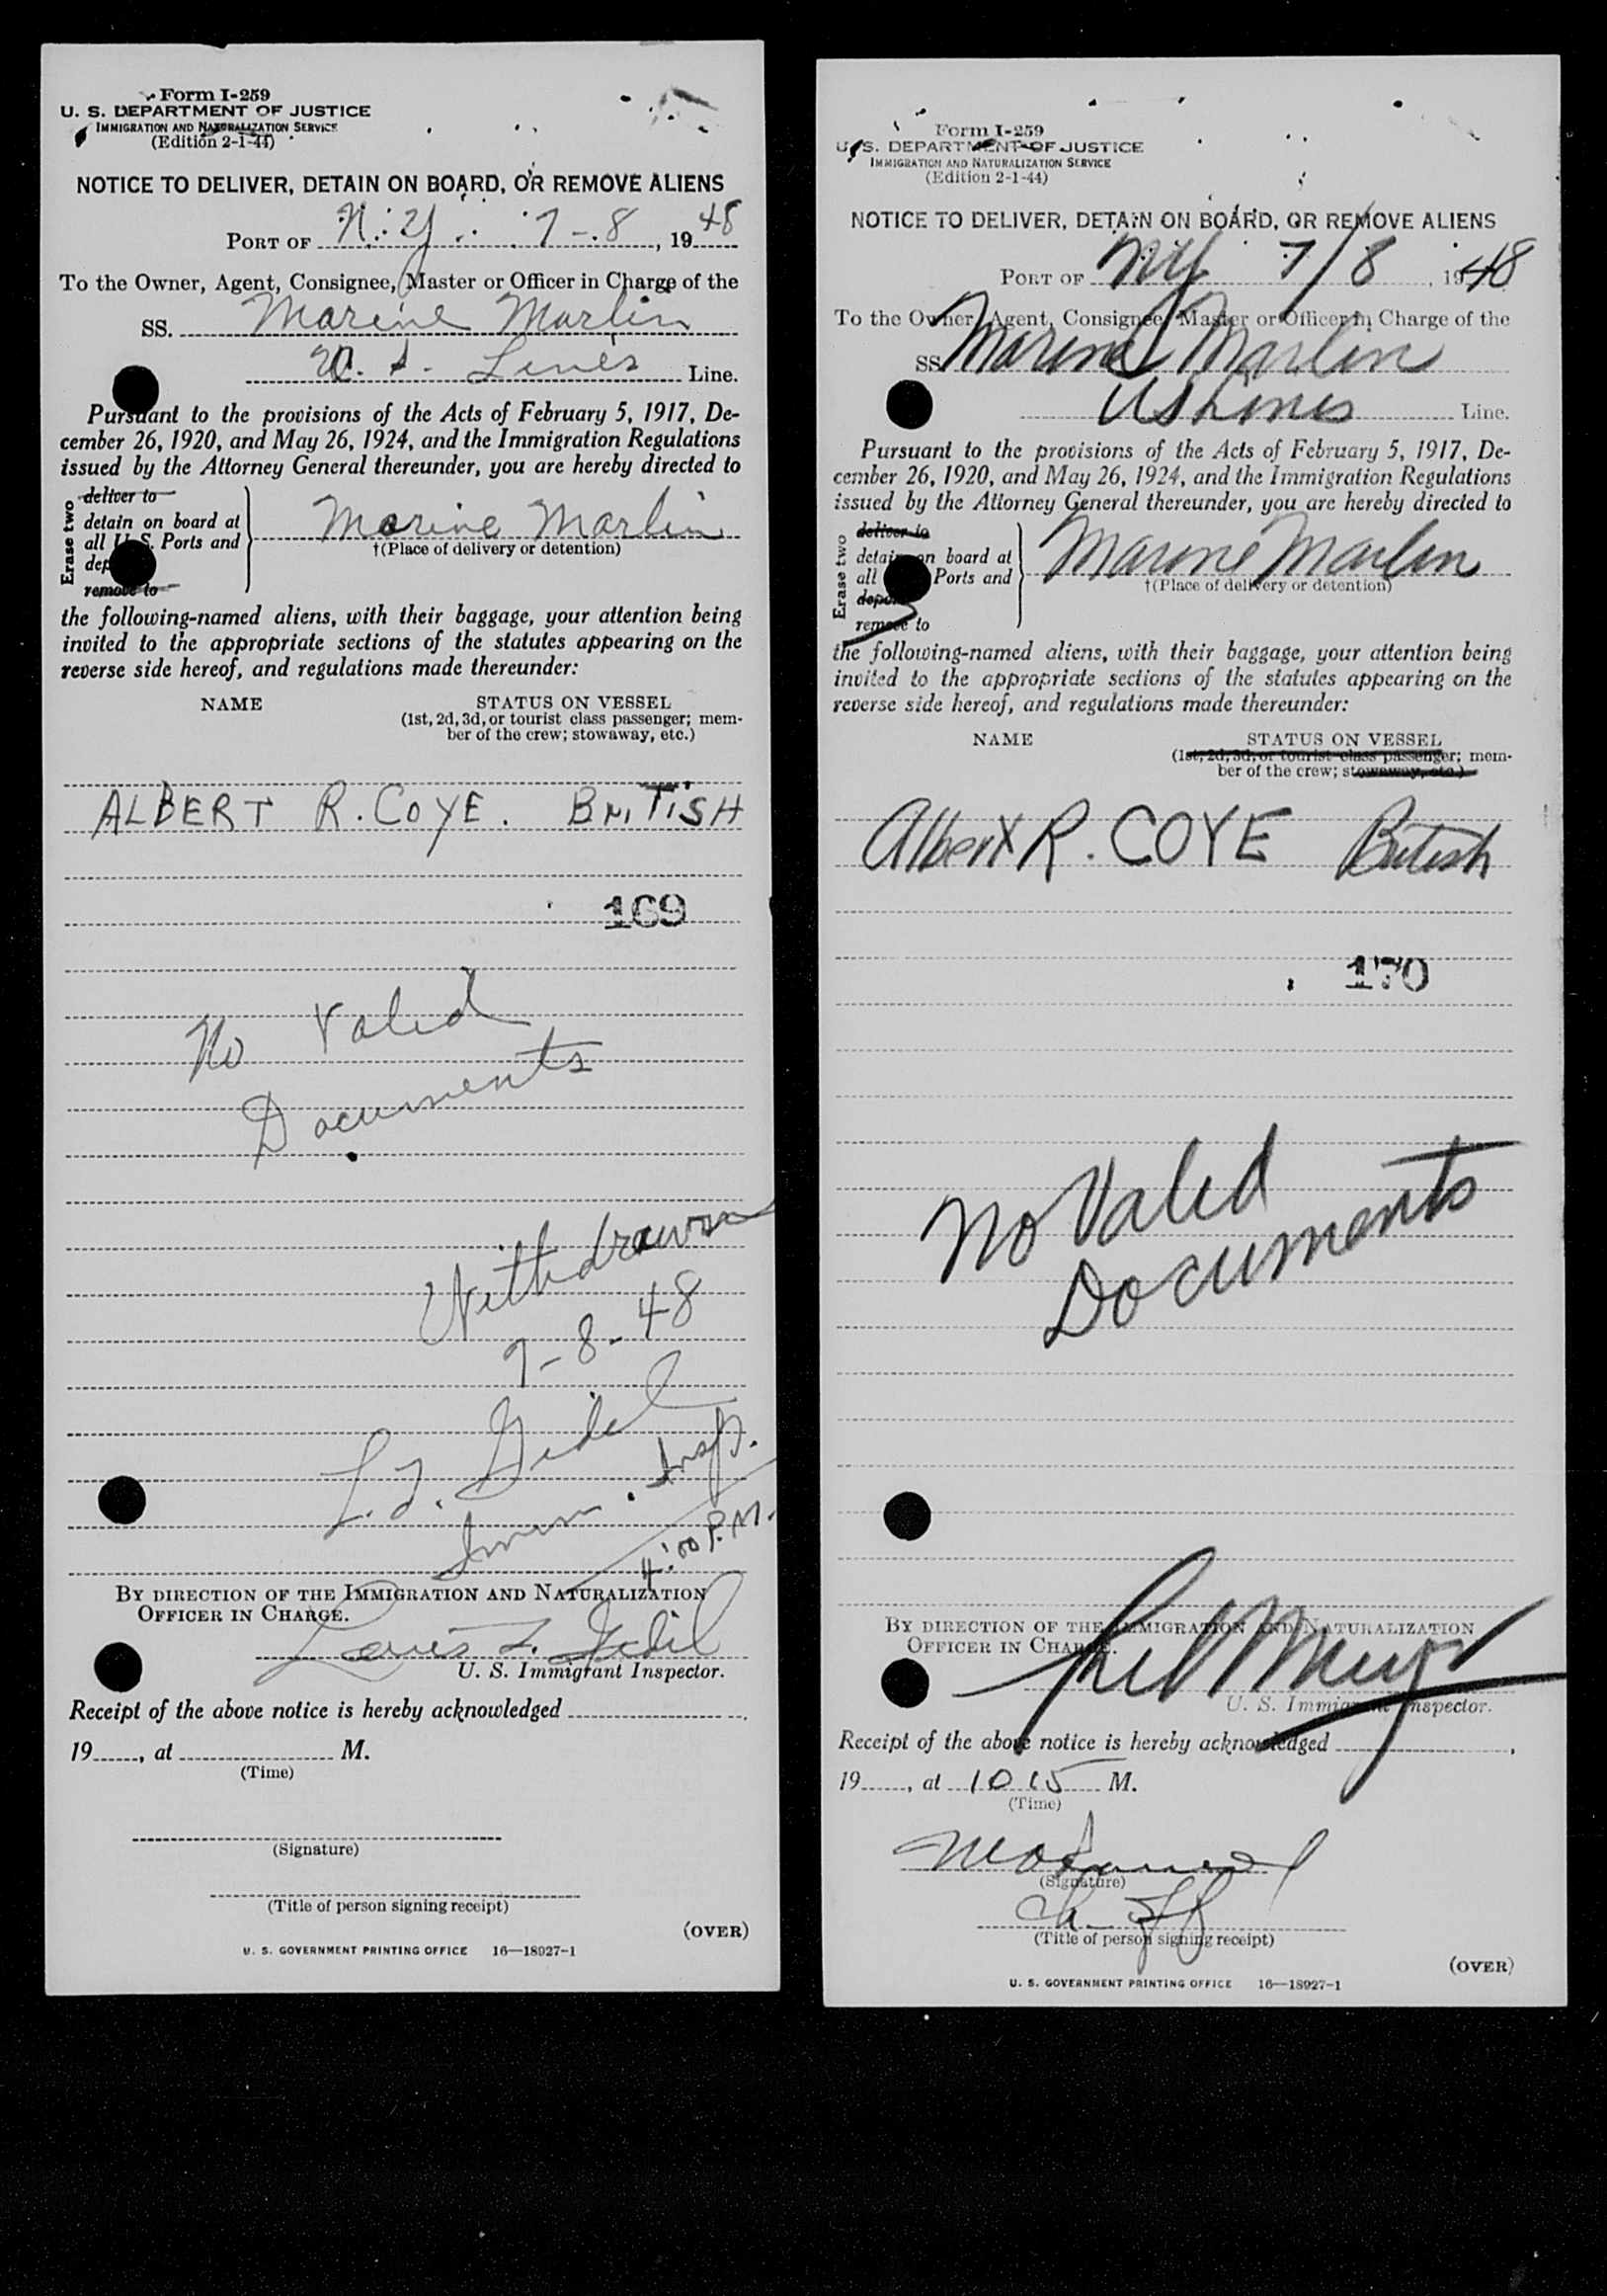 Form I-259
U. S. DEPARTMENT OF JUSTICE
IMMIGRATION AND NATURALIZATION SERVICE
(Edition 2-1-44)
NOTICE TO DELIVER, DETAIN ON BOARD, OR REMOVE ALIENS
PORT OF N.Y. 7-8, 1948
To the Owner, Agent, Consignee, Master or Officer in Charge of the
SS. Marine Marlin
U. S. Lines Line.
Pursuant to the provisions of the Acts of February 5, 1917, De-
cember 26, 1920, and May 26, 1924, and the Immigration Regulations
issued by the Attorney General thereunder, you are hereby directed to
Erase two
deliver to
detain on board at
all U. S. Ports and
dep
remove to
Marine Marlin
†(Place of delivery or detention)
the following-named aliens, with their baggage, your attention being
invited to the appropriate sections of the statutes appearing on the
reverse side hereof, and regulations made thereunder:
NAME STATUS ON VESSEL
(1st, 2d, 3d, or tourist class passenger; mem-
ber of the crew; stowaway, etc.)
ALBERT R. COYE. BRITISH
169
No Valid
Documents
Withdrawn
7-8-48
Immn. Insp.
4:00 P.M.
BY DIRECTION OF THE IMMIGRATION AND NATURALIZATION
OFFICER IN CHARGE.
U. S. Immigrant Inspector.
Receipt of the above notice is hereby acknowledged
19, at M.
(Time)
(Signature)
(Title of person signing receipt)
(OVER)
U. S. GOVERNMENT PRINTING OFFICE 16—18927-1
Form I-259
U. S. DEPARTMENT OF JUSTICE
IMMIGRATION AND NATURALIZATION SERVICE
(Edition 2-1-44)
NOTICE TO DELIVER, DETAIN ON BOARD, OR REMOVE ALIENS
PORT OF NY 7/8, 1948
To the Owner, Agent, Consignee, Master or Officer in Charge of the
SS Marine Marlin
US Lines Line.
Pursuant to the provisions of the Acts of February 5, 1917, De-
cember 26, 1920, and May 26, 1924, and the Immigration Regulations
issued by the Attorney General thereunder, you are hereby directed to
Erase two
deliver to
detain on board at
all Ports and
depo
remove to
Marine Marlin
†(Place of delivery or detention)
the following-named aliens, with their baggage, your attention being
invited to the appropriate sections of the statutes appearing on the
reverse side hereof, and regulations made thereunder:
NAME STATUS ON VESSEL
(1st, 2d, 3d, or tourist class passenger; mem-
ber of the crew; stowaway, etc.)
Albert R. COYE British
170
No Valid
Documents
BY DIRECTION OF THE IMMIGRATION AND NATURALIZATION
OFFICER IN CHARGE.
U. S. Immigrant Inspector.
Receipt of the above notice is hereby acknowledged
19, at 10 15 M.
(Time)
(Signature)
(Title of person signing receipt)
(OVER)
U. S. GOVERNMENT PRINTING OFFICE 16—18927-1